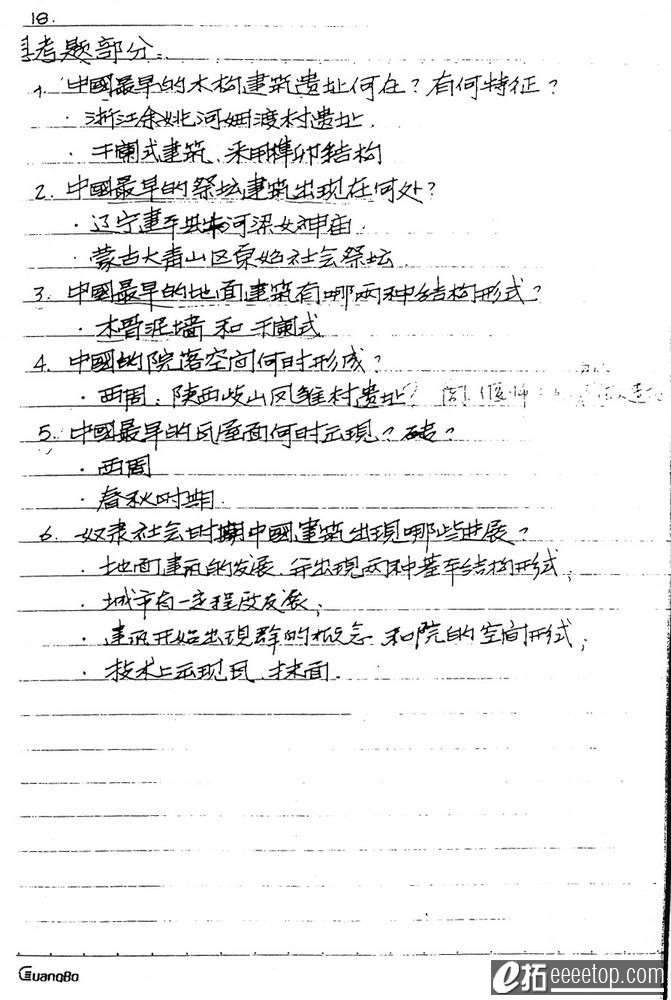 18.
考题部分:
1. 中國最早的木构建筑遗址何在？有何特征？
· 浙江余姚河姆渡村遗址.
· 干闌式建筑、采用榫卯结构
2. 中國最早的祭坛建筑出现在何处？
· 辽宁建平县牛河梁女神庙.
· 蒙古大青山区原始社会祭坛.
3. 中國最早的地面建筑有哪两种结构形式？
· 木骨泥墙 和 干闌式
4. 中國的院落空间何时形成？
· 西周：陕西岐山凤雏村遗址？
5. 中國最早的瓦屋面何时出現？砖？
· 西周
· 春秋时期.
6. 奴隶社会时期中國建筑出現哪些进展？
· 地面建筑的发展 并出現两种基本结构形式；
· 城市有一定程度发展；
· 建筑开始出現群的概念 和院的空间形式；
· 技术上出现瓦、抹面.
GuangBo
e拓 eeeetop.com